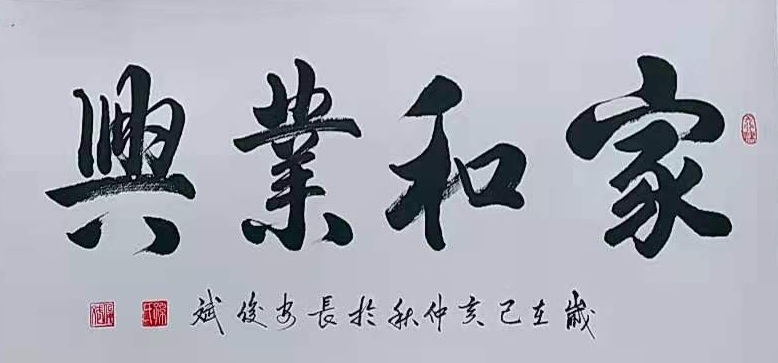 家和業興
歲在己亥仲秋於長安俊斌